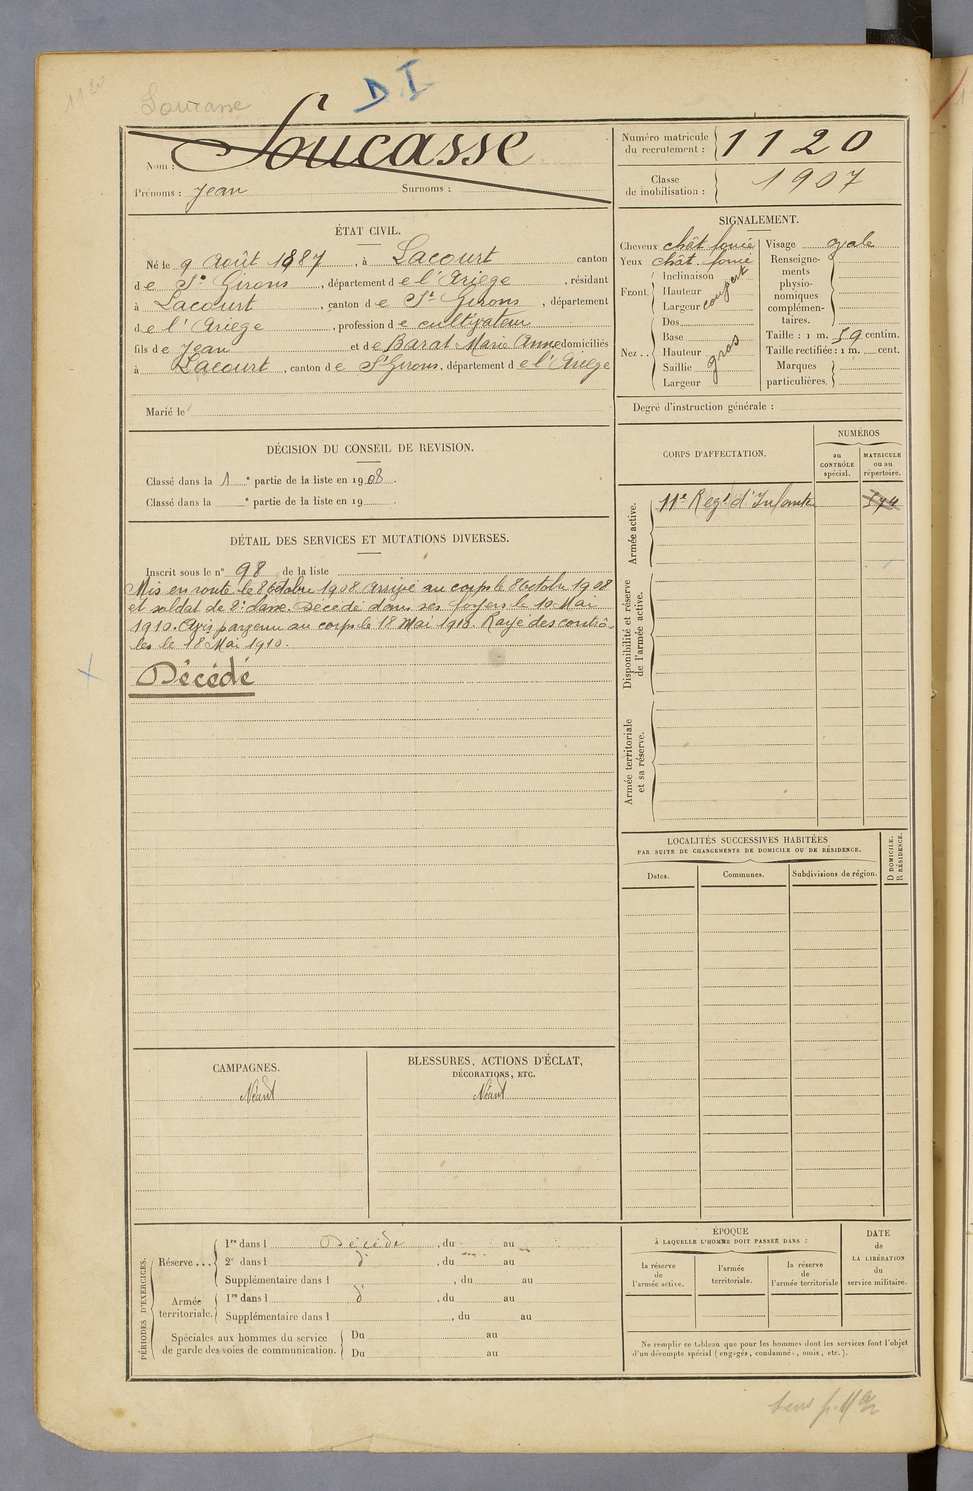 1120
Soucasse
D.I
Nom : Soucasse
Prénoms : Jean Surnoms :
Numéro matricule
du recrutement : 1120
Classe
de mobilisation : 1907
ÉTAT CIVIL.
Né le 9 Août 1887, à Lacourt canton
de St Girons, département de l'Ariège, résidant
à Lacourt, canton de St Girons, département
de l'Ariège, profession de cultivateur
fils de Jean et de Barat Marie Anne domiciliés
à Lacourt, canton de St Girons, département de l'Ariège
Marié le
SIGNALEMENT.
Cheveux chât foncé
Yeux chât. foncé
Front. Inclinaison
Hauteur
Largeur
Nez .. Dos
Base
Hauteur gros
Saillie
Largeur
Visage ovale
Renseigne-
ments
physio-
nomiques
complémen-
taires.
Taille : 1 m. 59 centim.
Taille rectifiée : 1 m. cent.
Marques
particulières.
Degré d'instruction générale :
DÉCISION DU CONSEIL DE REVISION.
Classé dans la 1e partie de la liste en 1908.
Classé dans la e partie de la liste en 19 .
DÉTAIL DES SERVICES ET MUTATIONS DIVERSES.
Inscrit sous le n° 98 de la liste
Mis en route le 8 Octobre 1908. Arrivé au corps le 8 Octobre 1908
et soldat de 2e classe. Décédé dans ses foyers le 10 Mai
1910. Avis parvenu au corps le 18 Mai 1910. Rayé des contrô-
les le 18 Mai 1910.
Décédé
CORPS D'AFFECTATION.
NUMÉROS
au
CONTRÔLE
spécial.
MATRICULE
ou au
répertoire.
Armée active.
11e Regt d'Infanterie 574
Disponibilité et réserve
de l'armée active.
Armée territoriale
et sa réserve.
LOCALITÉS SUCCESSIVES HABITÉES
PAR SUITE DE CHANGEMENTS DE DOMICILE OU DE RÉSIDENCE.
Dates.
Communes.
Subdivisions de région.
D DOMICILE.
R RÉSIDENCE.
CAMPAGNES.
Néant
BLESSURES, ACTIONS D'ÉCLAT,
DÉCORATIONS, ETC.
Néant
PÉRIODES D'EXERCICES.
Réserve ... 1re dans l Décédé, du au
2e dans l d°, du au
Supplémentaire dans l , du au
Armée
territoriale. 1re dans l d°, du au
Supplémentaire dans l , du au
Spéciales aux hommes du service
de garde des voies de communication. Du au
Du au
ÉPOQUE
À LAQUELLE L'HOMME DOIT PASSER DANS :
la réserve
de
l'armée active.
l'armée
territoriale.
la réserve
de
l'armée territoriale
DATE
de
LA LIBÉRATION
du
service militaire.
Ne remplir ce tableau que pour les hommes dont les services font l'objet
d'un décompte spécial (engagés, condamnés, omis, etc.).